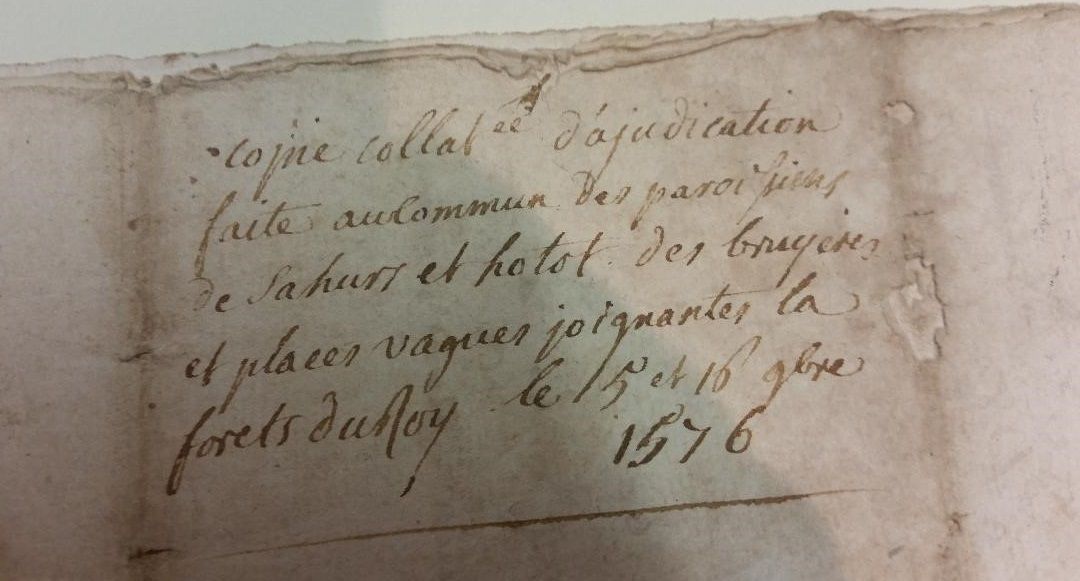 copie collat^ée d'ajudication
faite au commun des paroissiens
de Sahurs et hotot des bruyeres
et places vagues joignantes la
forets du Roy le 15 et 16 9bre
1576